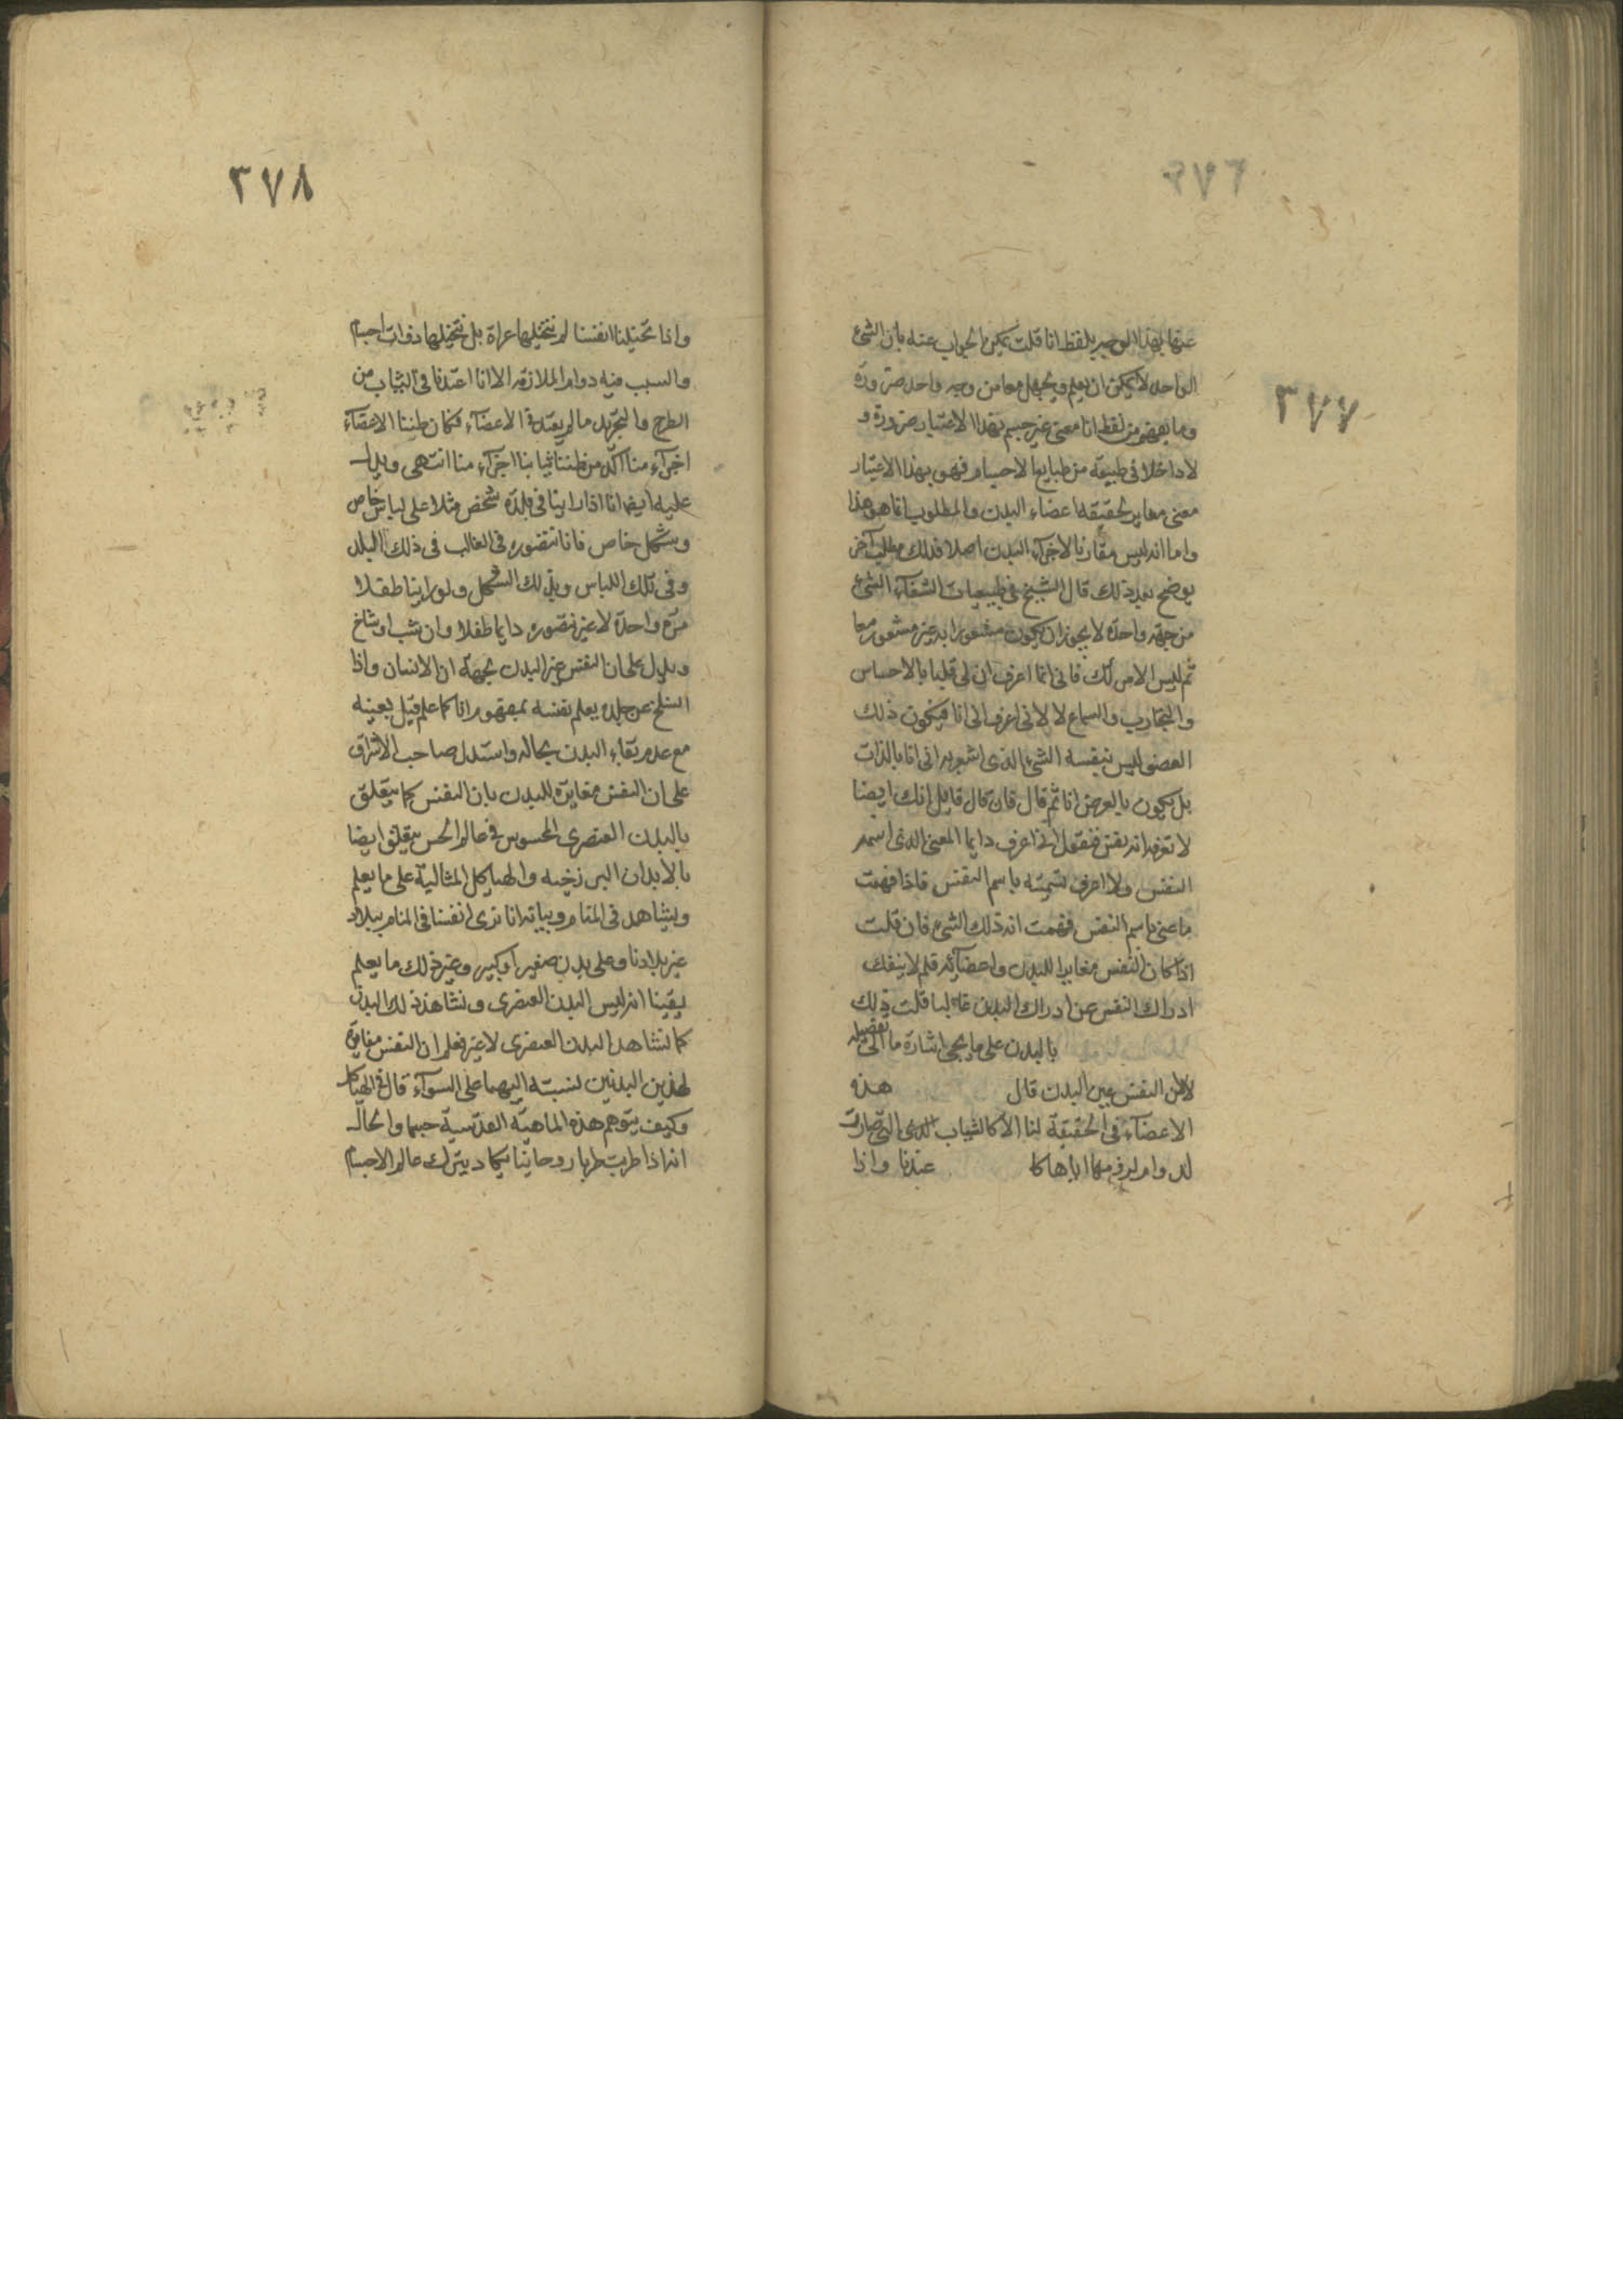 ٣٧٦
٣٧٧
عنها بهذا الوجه بلفظ انا قلت يمكن الجواب عنه بان الشئ
الواحد لا يمكن ان يعلم ويجهل معا من وجه واحد ضرورة
وما يفهم من لفظ انا معنى غير جسم بهذا الاعتبار ضرورة و
لا داخلا فى طبيعة من طبايع الاجسام فهو بهذا الاعتبار
معنى مغاير لحقيقة اعضاء البدن والمطلوب انما هو هذا
واما انه ليس مقارنا لاجزاء البدن اصلا فذلك مطلب آخر
يوضح بعد ذلك قال الشيخ فى طبيعيات الشفاء الشئ
من جهة واحدة لا يجوز ان يكون مشعورا به غير مشعور معا
ثم ليس الامر كك فانى انما اعرف ان لى قلبا بالاحساس
والتجارب والسماع لا لانى اعرف انى انا فيكون ذلك
العضو ليس بنفسه الشئ الذى اشعر به انى انا بالذات
بل يكون بالعرض انا ثم قال فان قال قايل انك ايضا
لا تعرف انه نفس فنقول انى اعرف دايما المعنى الذى اسمه
النفس ولا اعرف تسميته باسم النفس فاذا فهمت
ما عنى باسم النفس فهمت انه ذلك الشئ فان قلت
اذا كان النفس مغايرا للبدن واعضائه فلم لا ينفك
ادراك النفس عن ادراك البدن غالبا قلت ذلك
بالبدن على ما يجئ اشارة ما الى تفصيله
لا لان النفس عين البدن قال هذه
الاعضاء فى الحقيقة لنا الا كالثياب الذى التى صارت
لدوام لزومها اياها كا عندنا واذا
٣٧٨
واذا تخيلنا انفسنا لم نتخيلها عراة بل نتخيلها ذوات اجسام
والسبب فيه دوام الملازمة الا انا اعتدنا فى الثياب من
الطرح والتجريد ما لم يعتد فى الاعضاء فكان ظننا الاعضاء
اجزاء منا آكد من ظننا ثيابنا اجزاء منا انتهى ويدل
عليه ايضا انا اذا راينا فى بلدة شخص مثلا على لباس خاص
وشكل خاص فانا نتصوره فى الغالب فى ذلك البلد
وفى تلك اللباس وبذلك الشكل ولو راينا طفلا
مرة واحدة لا غير نتصوره دايما طفلا وان شب او شاخ
ويدل على ان النفس غير البدن بجهة ان الانسان واذا
انسلخ عن جلده يعلم نفسه بمفهوم انا كما علم قبل بعينه
مع عدم بقاء البدن بحاله واستدل صاحب الاشراق
على ان النفس مغايرة للبدن بان النفس كما يتعلق
بالبدن العنصرى المحسوس فى عالم الحس يتعلق ايضا
بالابدان البرزخيه والهياكل المثالية على ما يعلم
ويشاهد فى المنام وبيانه انا نرى انفسنا فى المنام ببلاد
غير بلادنا وعلى بدن صغير او كبير وغير ذلك ما يعلم
يقينا انه ليس البدن العنصرى ونشاهد ذلك البدن
كما نشاهد البدن العنصرى لا غير فعلم ان النفس مغايرة
لهذين البدنين نسبته اليهما على السواء قال فى الهياكل
وكيف يتوهم هذه الماهية القدسية جسما والحال
انه اذا طربت طربا روحانيا يكاد يترك عالم الاجسام